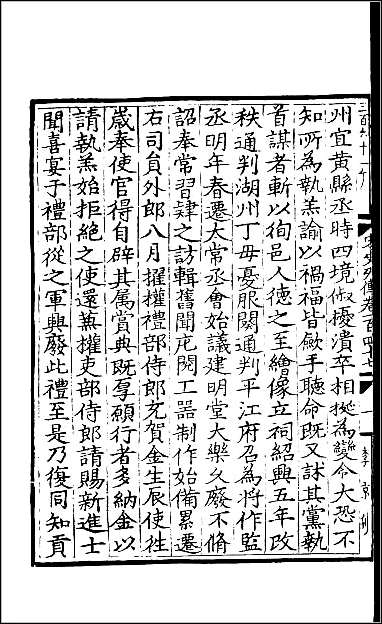 州宜黃縣丞時四境俶擾潰卒相挻為變令大恐不
知所為執羔諭以禍福皆斂手聽命既又訹其黨執
首謀者斬以徇邑人德之至繪像立祠紹興五年改
秩通判湖州丁母憂服闋通判平江府召為將作監
丞明年春遷太常丞會始議建明堂大樂久廢不脩
詔奉常習肄之訪輯舊聞庀閱工器制作始備累遷
右司員外郎八月擢權禮部侍郎充賀金生辰使徃
歲奉使官得自辟其属賞典既厚願行者多納金以
請執羔始拒絕之使還兼權吏部侍郎請賜新進士
聞喜宴于禮部從之軍興廢此禮至是乃復同知貢